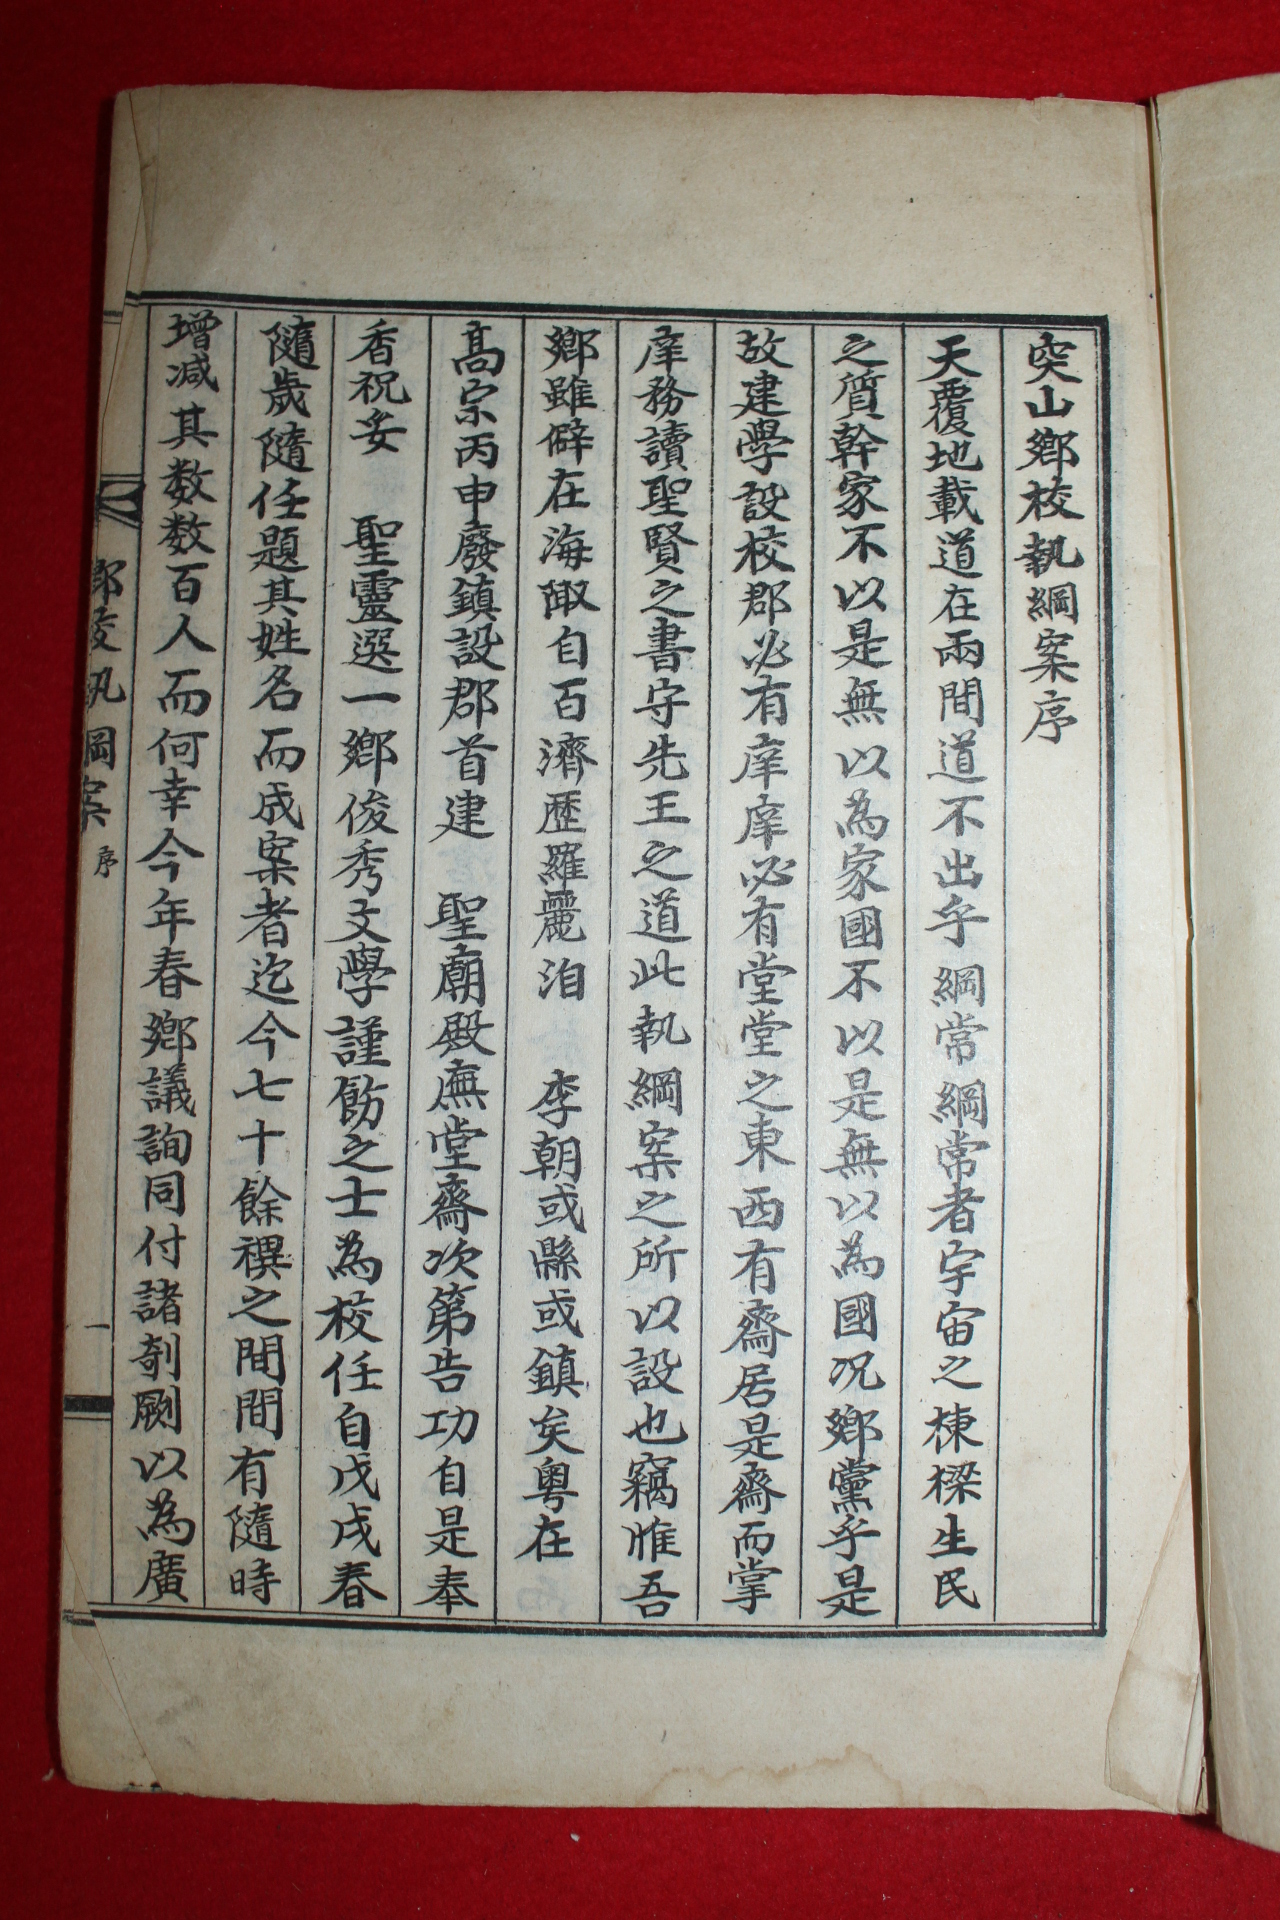 突山鄕校執綱案序
天覆地載道在兩間道不出乎綱常綱常者宇宙之棟樑生民
之質幹家不以是無以為家國不以是無以為國况鄕黨乎是
故建學設校郡必有庠庠必有堂堂之東西有齋居是齋而掌
庠務讀聖賢之書守先王之道此執綱案之所以設也竊惟吾
鄕雖僻在海陬自百濟歷羅麗洎 李朝或縣或鎮矣粤在
高宗丙申廢鎮設郡首建 聖廟殿廡堂齋次第告功自是奉
香祝妥 聖靈選一鄕俊秀文學謹飭之士為校任自戊戌春
隨歲隨任題其姓名而成案者迄今七十餘禩之間間有隨時
增减其数数百人而何幸今年春鄕議詢同付諸剞劂以為廣
鄕校執綱案 序 一